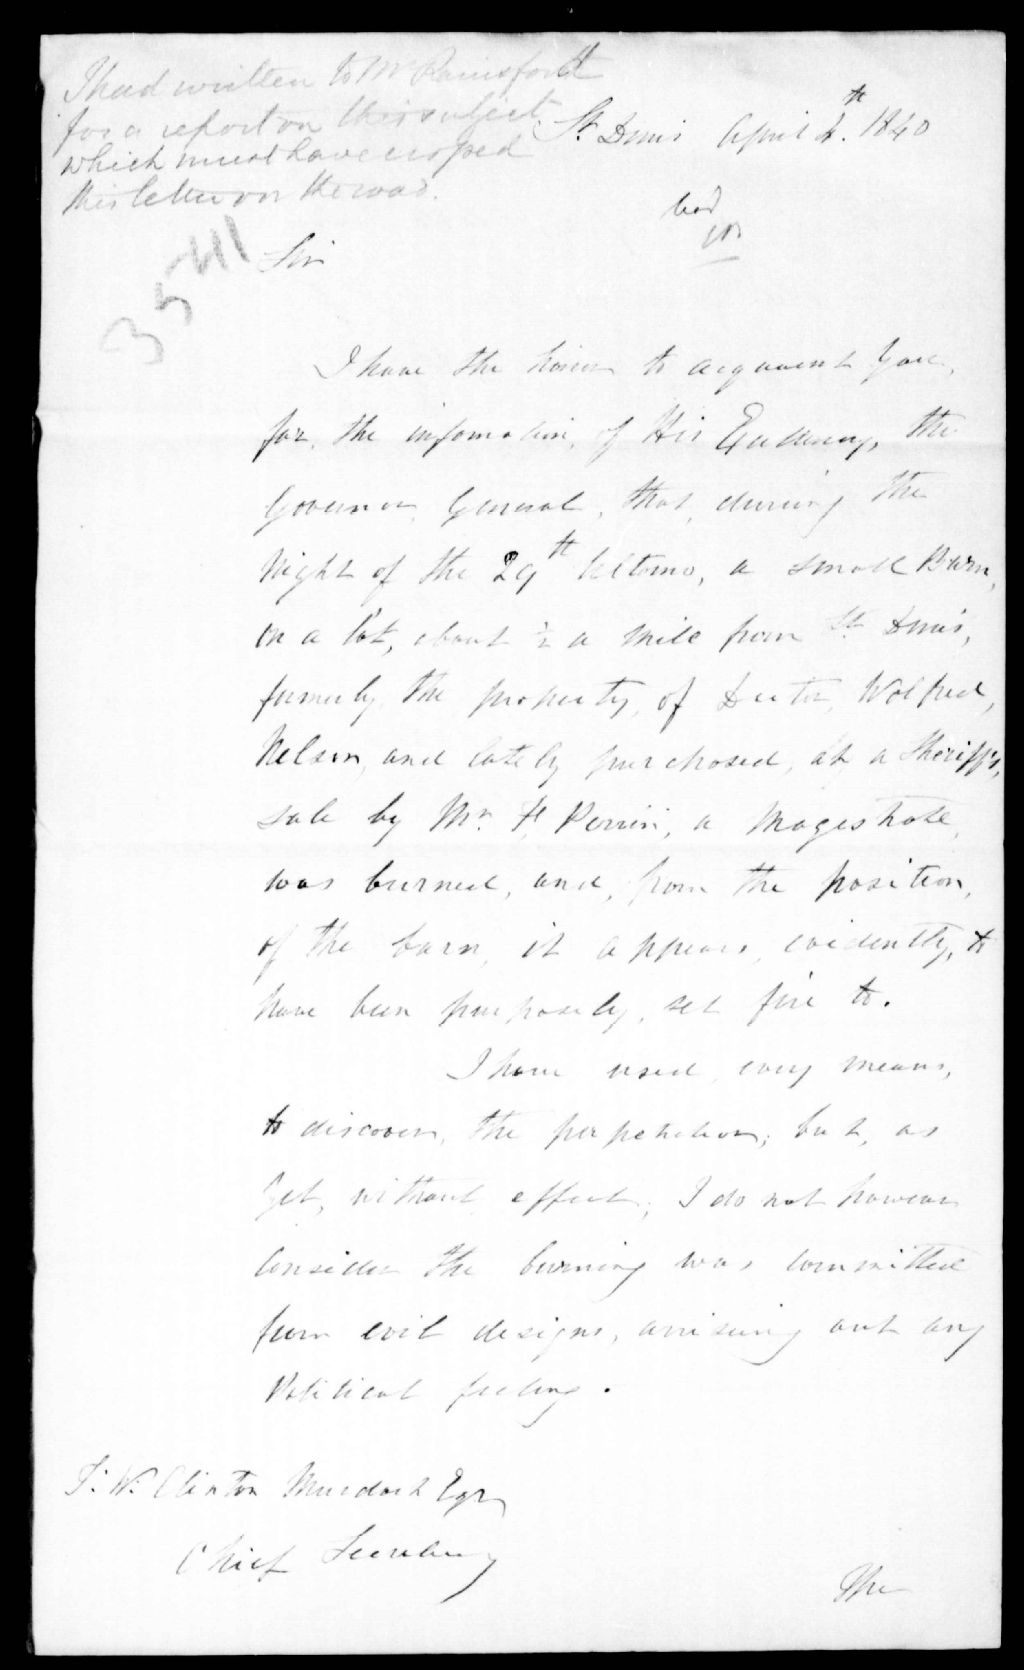 I had written to Mr Rainsford
for a report on this subject
which must have crossed
this letter on the road.
St Denis April 4th. 1840
3541
Sir
I have the honor to acquaint you,
for, the information, of His Excellency, the
Governor General, that, during the
Night of the 29th Ultimo, a small Barn,
on a lot, about ½ a mile from St. Denis,
formerly the property, of Doctor, Wolfred,
Nelson, and lately purchased, at a Sheriff's,
sale by Mr. F. Perrin, a Magistrate,
was burned, and, from the position,
of the barn, it appears, evidently, to
have been purposely, set fire to.
I have used, every means,
to discover, the perpetrators; but, as
yet, without effect; I do not however
consider the burning was committed
from evil designs, arrising out any
Political feeling.
T. W. Clinton Murdoch Esqr
Chief Secretary
The